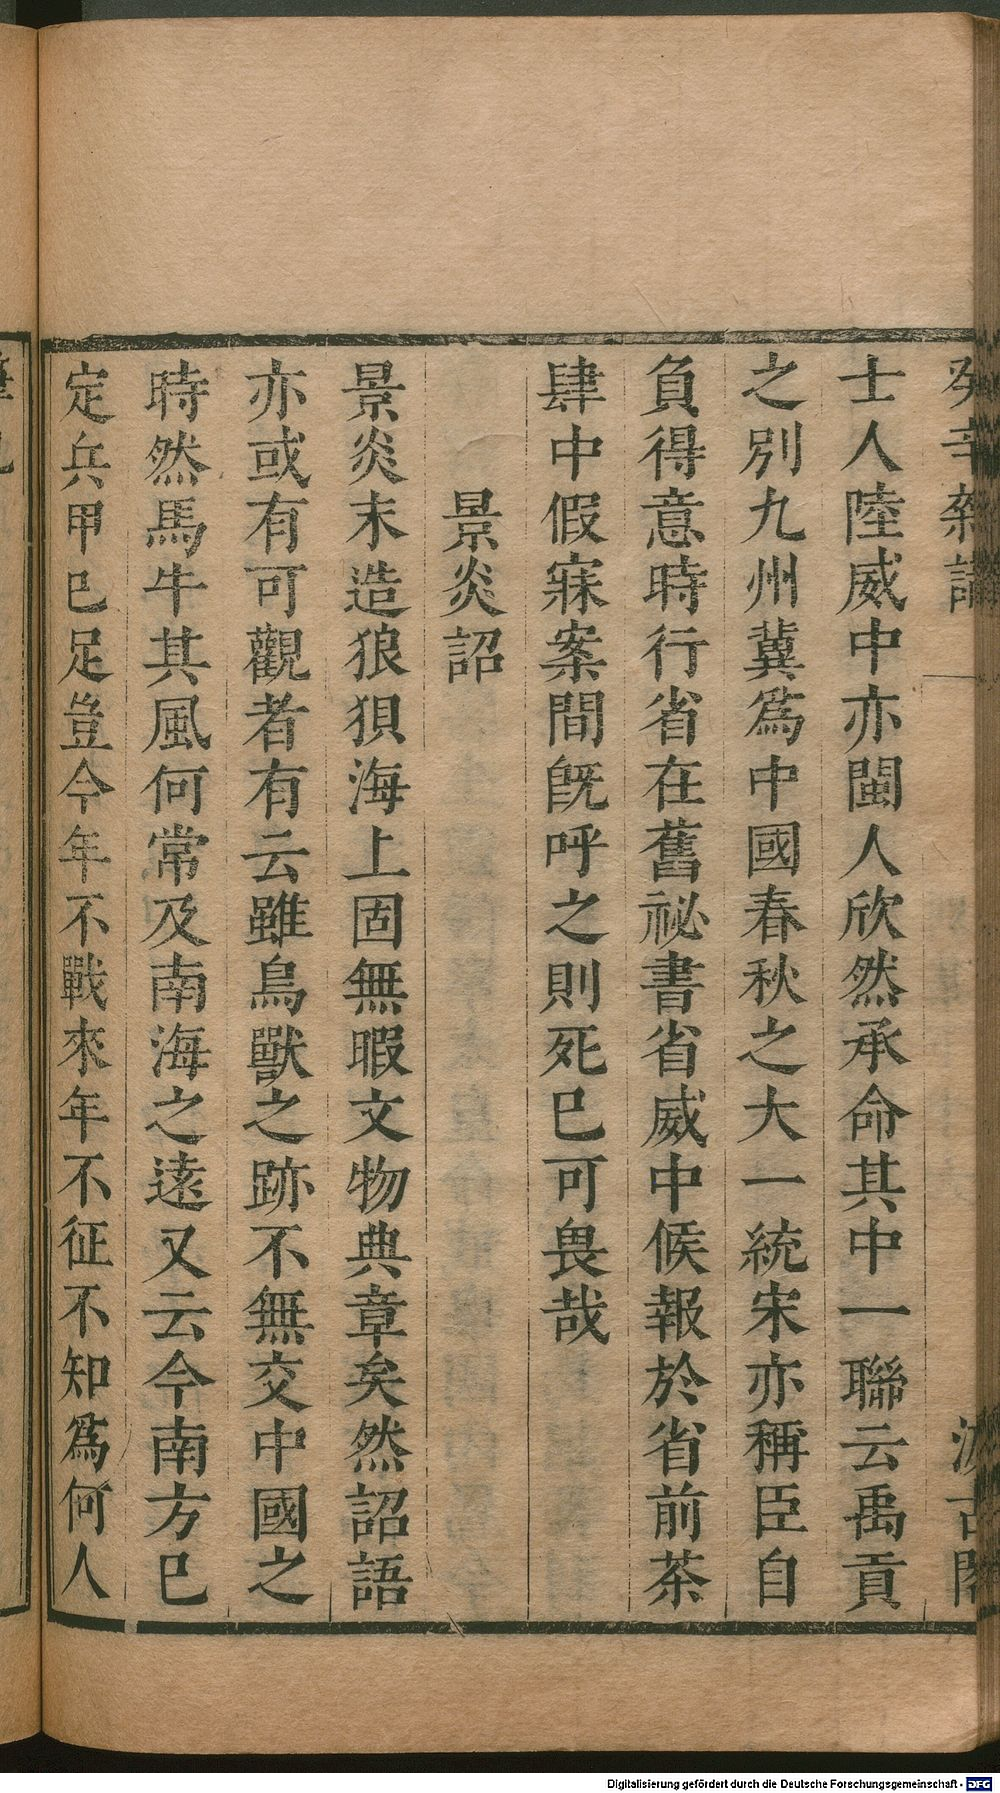 癸辛雜識
汲古閣
士人陸威中亦閩人欣然承命其中一聯云禹貢
之別九州冀爲中國春秋之大一統宋亦稱臣自
負得意時行省在舊祕書省威中候報於省前茶
肆中假寐案間旣呼之則死巳可畏哉
景炎詔
景炎末造狼狽海上固無暇文物典章矣然詔語
亦或有可觀者有云雖鳥獸之跡不無交中國之
時然馬牛其風何常及南海之遠又云今南方巳
定兵甲巳足豈今年不戰來年不征不知爲何人
Digitalisierung gefördert durch die Deutsche Forschungsgemeinschaft - DFG